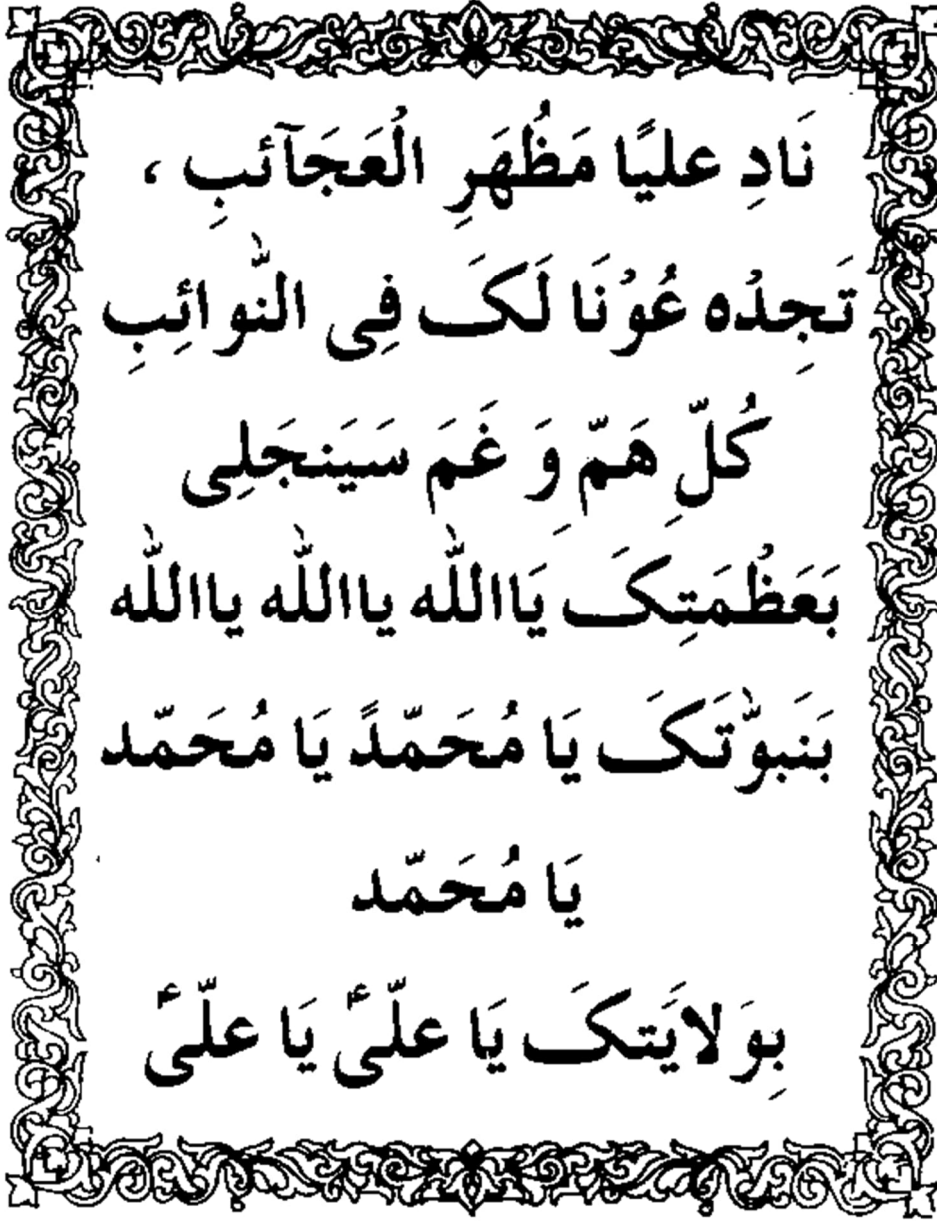 نَادِ عليًا مَظْهَرِ الْعَجَآئبِ ،
تَجِدْه عُوْنَا لَکَ فِی النّٰوائِبِ
کُلِّ هَمّ وَ غَمَ سَيَنجَلِی
بَعَظْمَتِکَ يَااللّٰه يااللّٰه يااللّٰه
بَنَبوّٰتَکَ يَا مُحَمّدً يَا مُحَمّد
يَا مُحَمّد
بِوَلايَتکَ يَا علّیؑ يَا علّیؑ